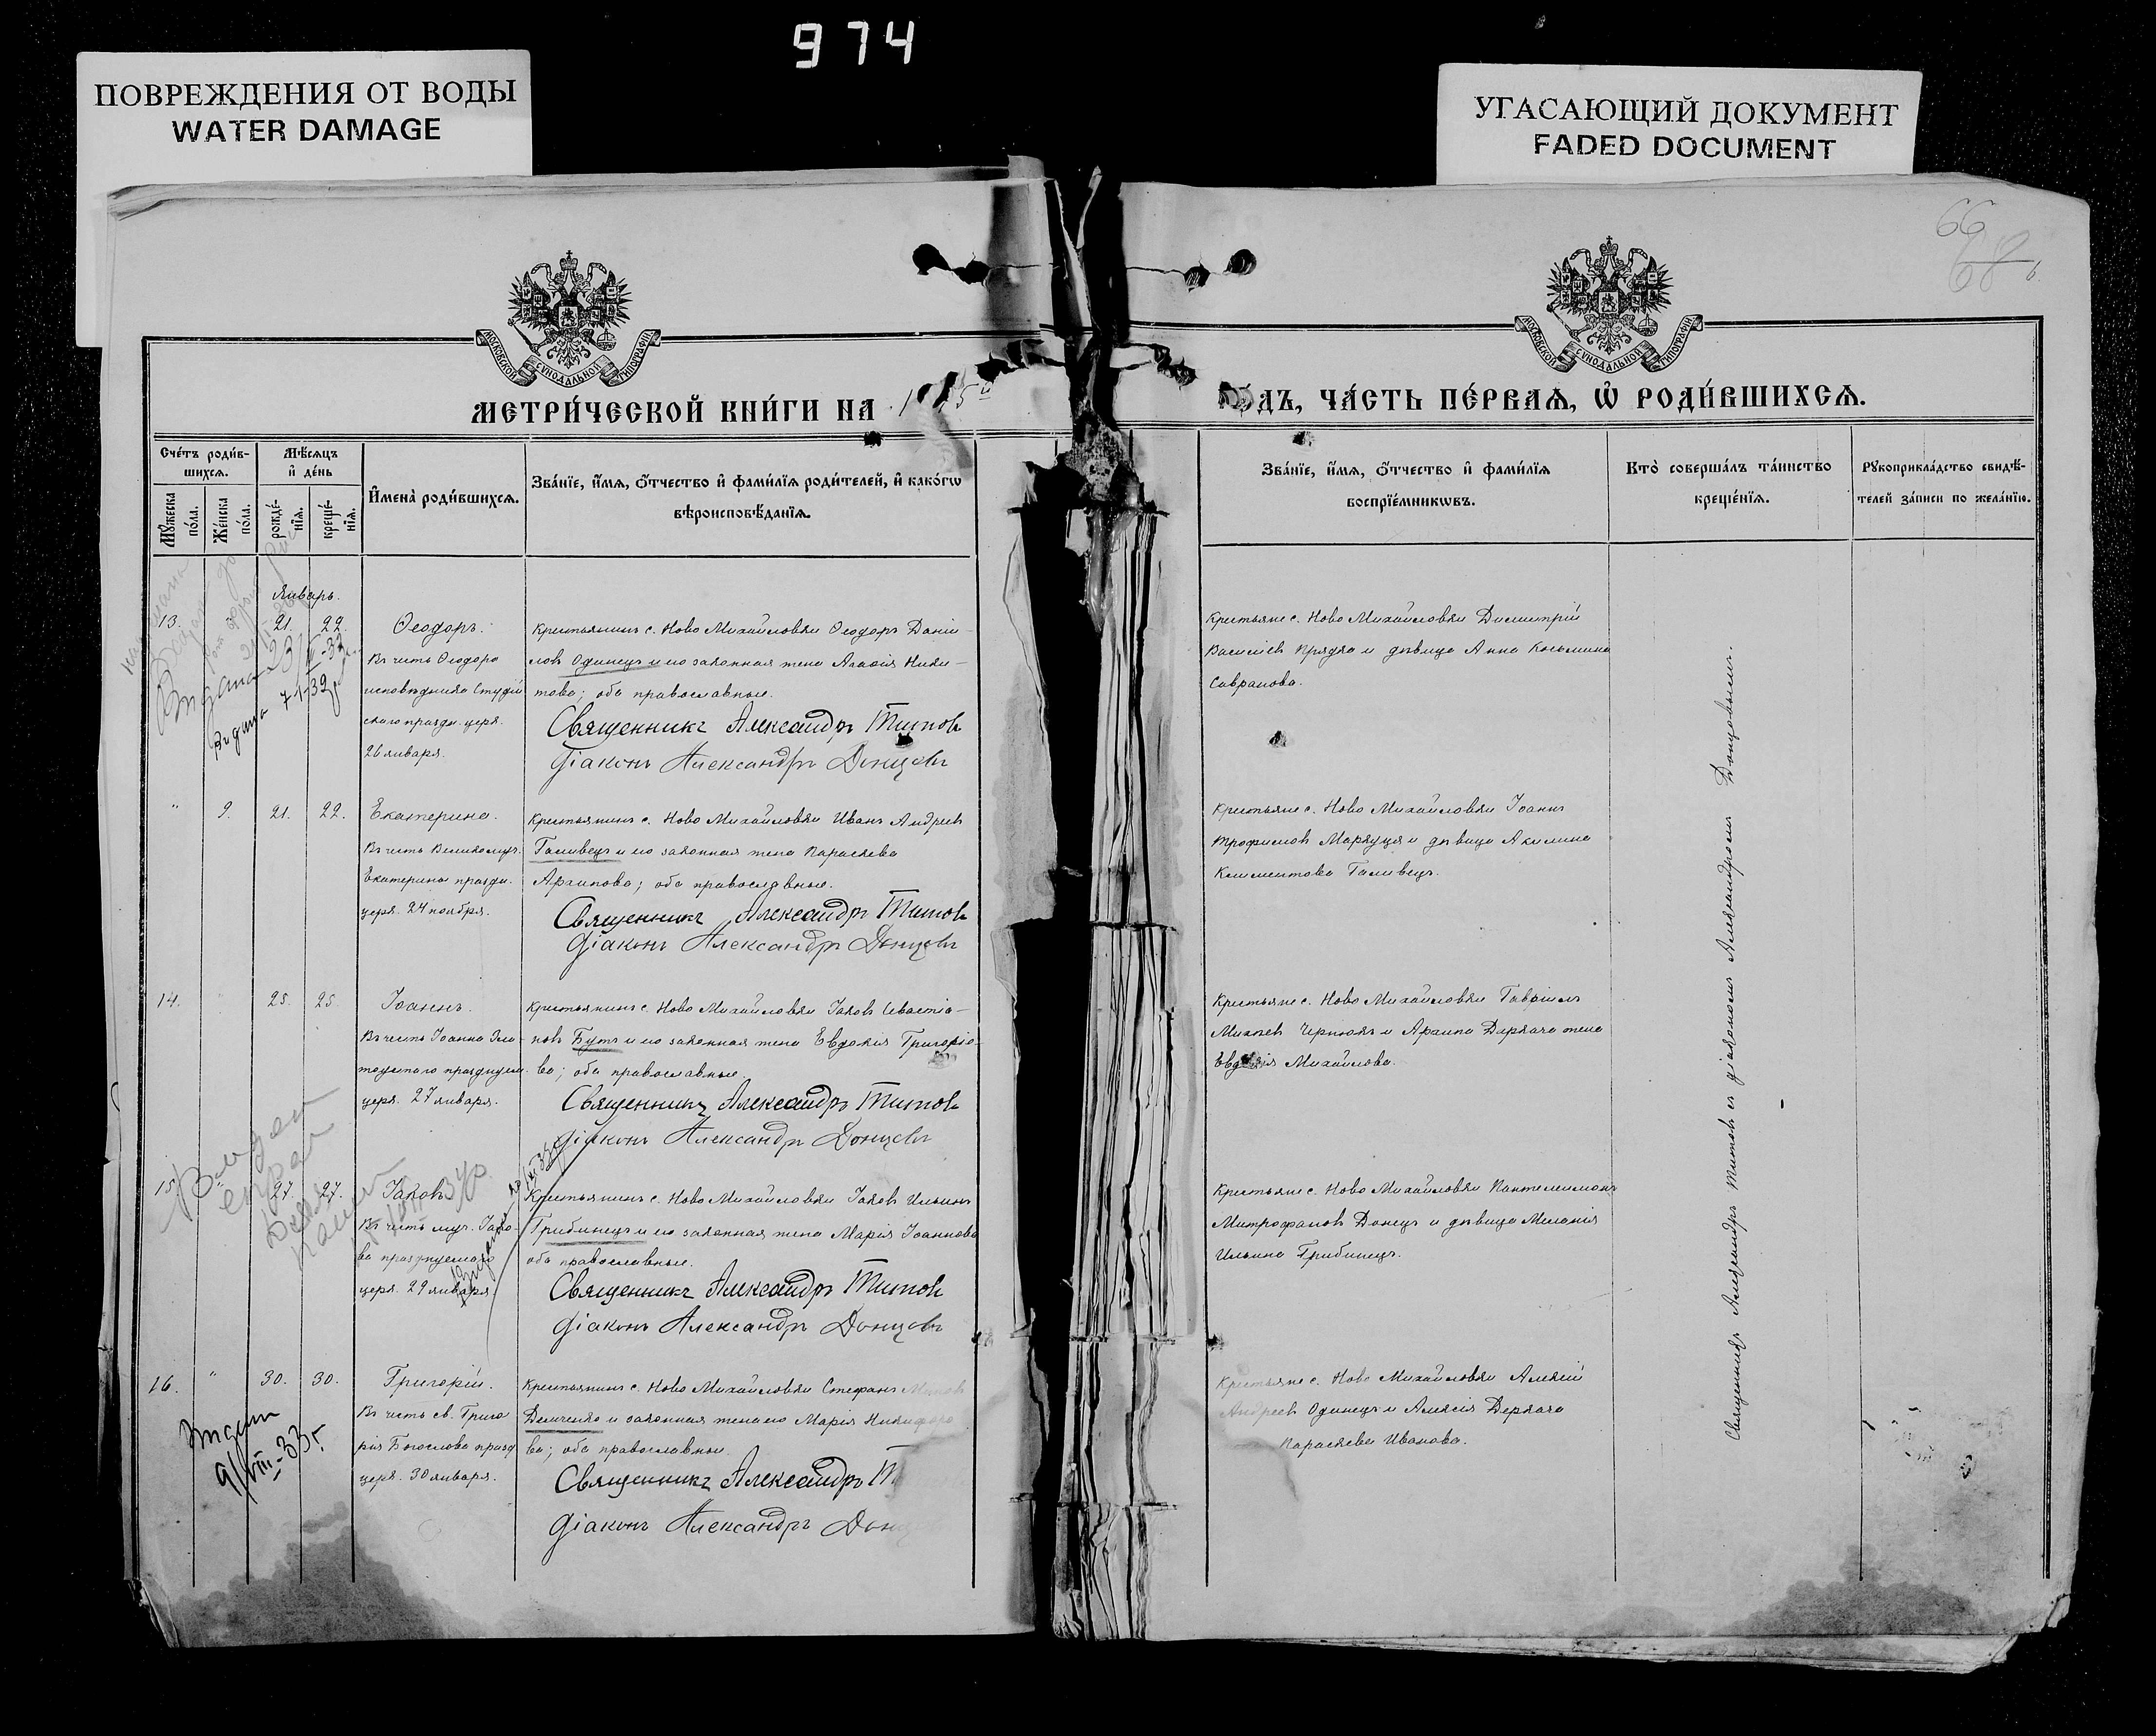 974
ПОВРЕЖДЕНИЯ ОТ ВОДЫ
WATER DAMAGE
УГАСАЮЩИЙ ДОКУМЕНТ
FADED DOCUMENT
66
68
МОСКОВСКОЙ СѴНОДАЛЬНОЙ ТИПОГРАФІИ
МОСКОВСКОЙ СѴНОДАЛЬНОЙ ТИПОГРАФІИ
МЕТРИ́ЧЕСКОЙ КНИ́ГИ НА
ГО́ДЪ, ЧА́СТЬ ПЕ́РВАѦ, Ѡ҆ РОДИ́ВШИХСѦ.
Сче́тъ роди́в-
шихсѧ.
Мꙋ́жеска по́ла.
Же́нска по́ла.
Мѣ́сѧцъ
и҆ де́нь
рожде́нїѧ.
креще́нїѧ.
И҆мена̀ роди́вшихсѧ.
Зва́нїе, и҆́мѧ, ѻ҆́тчество и҆ фами́лїѧ роди́телей, и҆ како́гѡ
вѣроисповѣ́данїѧ.
Зва́нїе, и҆́мѧ, ѻ҆́тчество и҆ фами́лїѧ
воспрїе́мникѡвъ.
Кто̀ соверша́лъ та́инство
креще́нїѧ.
Рꙋкоприкла́дство свидѣ́-
телей за́писи по жела́нїю.
Январь.
13. 21. 22. Ѳеодоръ.
Въ честь Ѳеодора
исповѣдника Студій
скаго праздн. церк.
26 января.
Крестьянинъ с. Ново Михайловки Ѳеодоръ Даніи-
ловъ Одинецъ и его законная жена Агафія Ники-
това; оба православные.
Священникъ Александръ Титовъ
Діаконъ Александръ Донцовъ
Крестьяне с. Ново Михайловки Димитрій
Василіевъ Прядка и дѣвица Анна Косьмина
Савранова.
Выдана 7/I-32
" 9. 21. 22. Екатерина.
Въ честь Великомуч.
Екатерины праздн.
церк. 24 ноября.
Крестьянинъ с. Ново Михайловки Иванъ Андреевъ
Галивецъ и его законная жена Параскева
Архипова; оба православные.
Священникъ Александръ Титовъ
Діаконъ Александръ Донцовъ
Крестьяне с. Ново Михайловки Іоаннъ
Трофимовъ Маркуця и дѣвица Акилина
Климентова Галивецъ.
14. 25. 25. Іоаннъ.
Въ честь Іоанна Зла-
тоустаго празднуем.
церк. 27 января.
Крестьянинъ с. Ново Михайловки Іаковъ Севастіа-
новъ Бутъ и его законная жена Евдокія Григоріе-
ва; оба православные.
Священникъ Александръ Титовъ
Діаконъ Александръ Донцовъ
Крестьяне с. Ново Михайловки Гавріилъ
Михѣевъ Чернюкъ и Архипа Деркача жена
Евдокія Михайлова.
15. " 27. 27. Іаковъ
Въ честь муч. Іако-
ва празднуемаго
церк. 29 января.
Крестьянинъ с. Ново Михайловки Іаковъ Ильинъ
Грибинецъ и его законная жена Марія Іоаннова
оба православные.
Священникъ Александръ Титовъ
Діаконъ Александръ Донцовъ
Крестьяне с. Ново Михайловки Пантелеимонъ
Митрофановъ Донецъ и дѣвица Меланія
Ильина Грибинецъ.
16. " 30. 30. Григорій.
Въ честь св. Григо
рія Богослова празд
церк. 30 января.
Крестьянинъ с. Ново Михайловки Стефанъ
Демченко и законная жена его Марія Никифоро
ва; оба православные.
Священникъ Александръ Т
Діаконъ Александръ Донц
Крестьяне с. Ново Михайловки Алексій
Андреевъ Одинецъ и Алексія Деркача
Параскева Иванова.
9/VIII-33 г.
Священникъ Александръ Титовъ съ діакономъ Александромъ Донцовымъ.